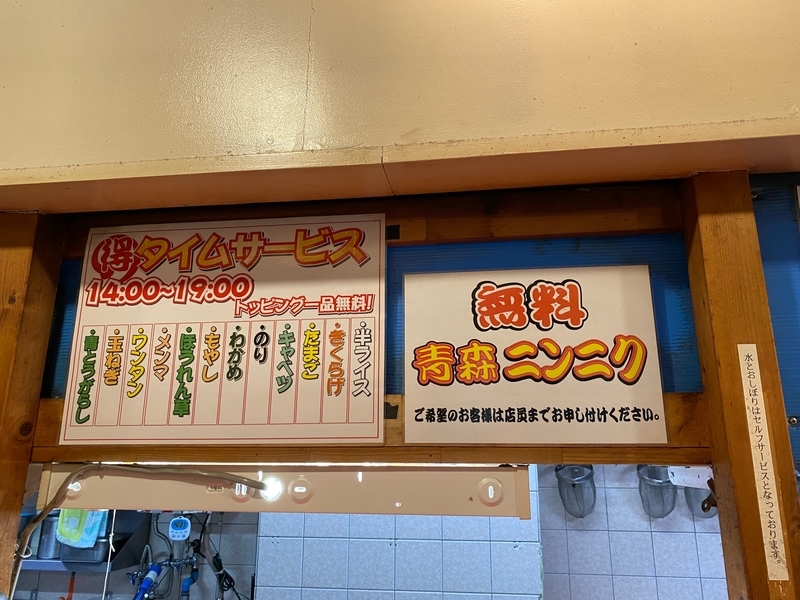 得タイムサービス
14:00~19:00
トッピング一品無料!
・半ライス
・きくらげ
・たまご
・キャベツ
・のり
・わかめ
・もやし
・ほうれん草
・メンマ
・ワンタン
・玉ねぎ
・青とうがらし
無料
青森ニンニク
ご希望のお客様は店員までお申し付けください。
水とおしぼりはセルフサービスとなっております。